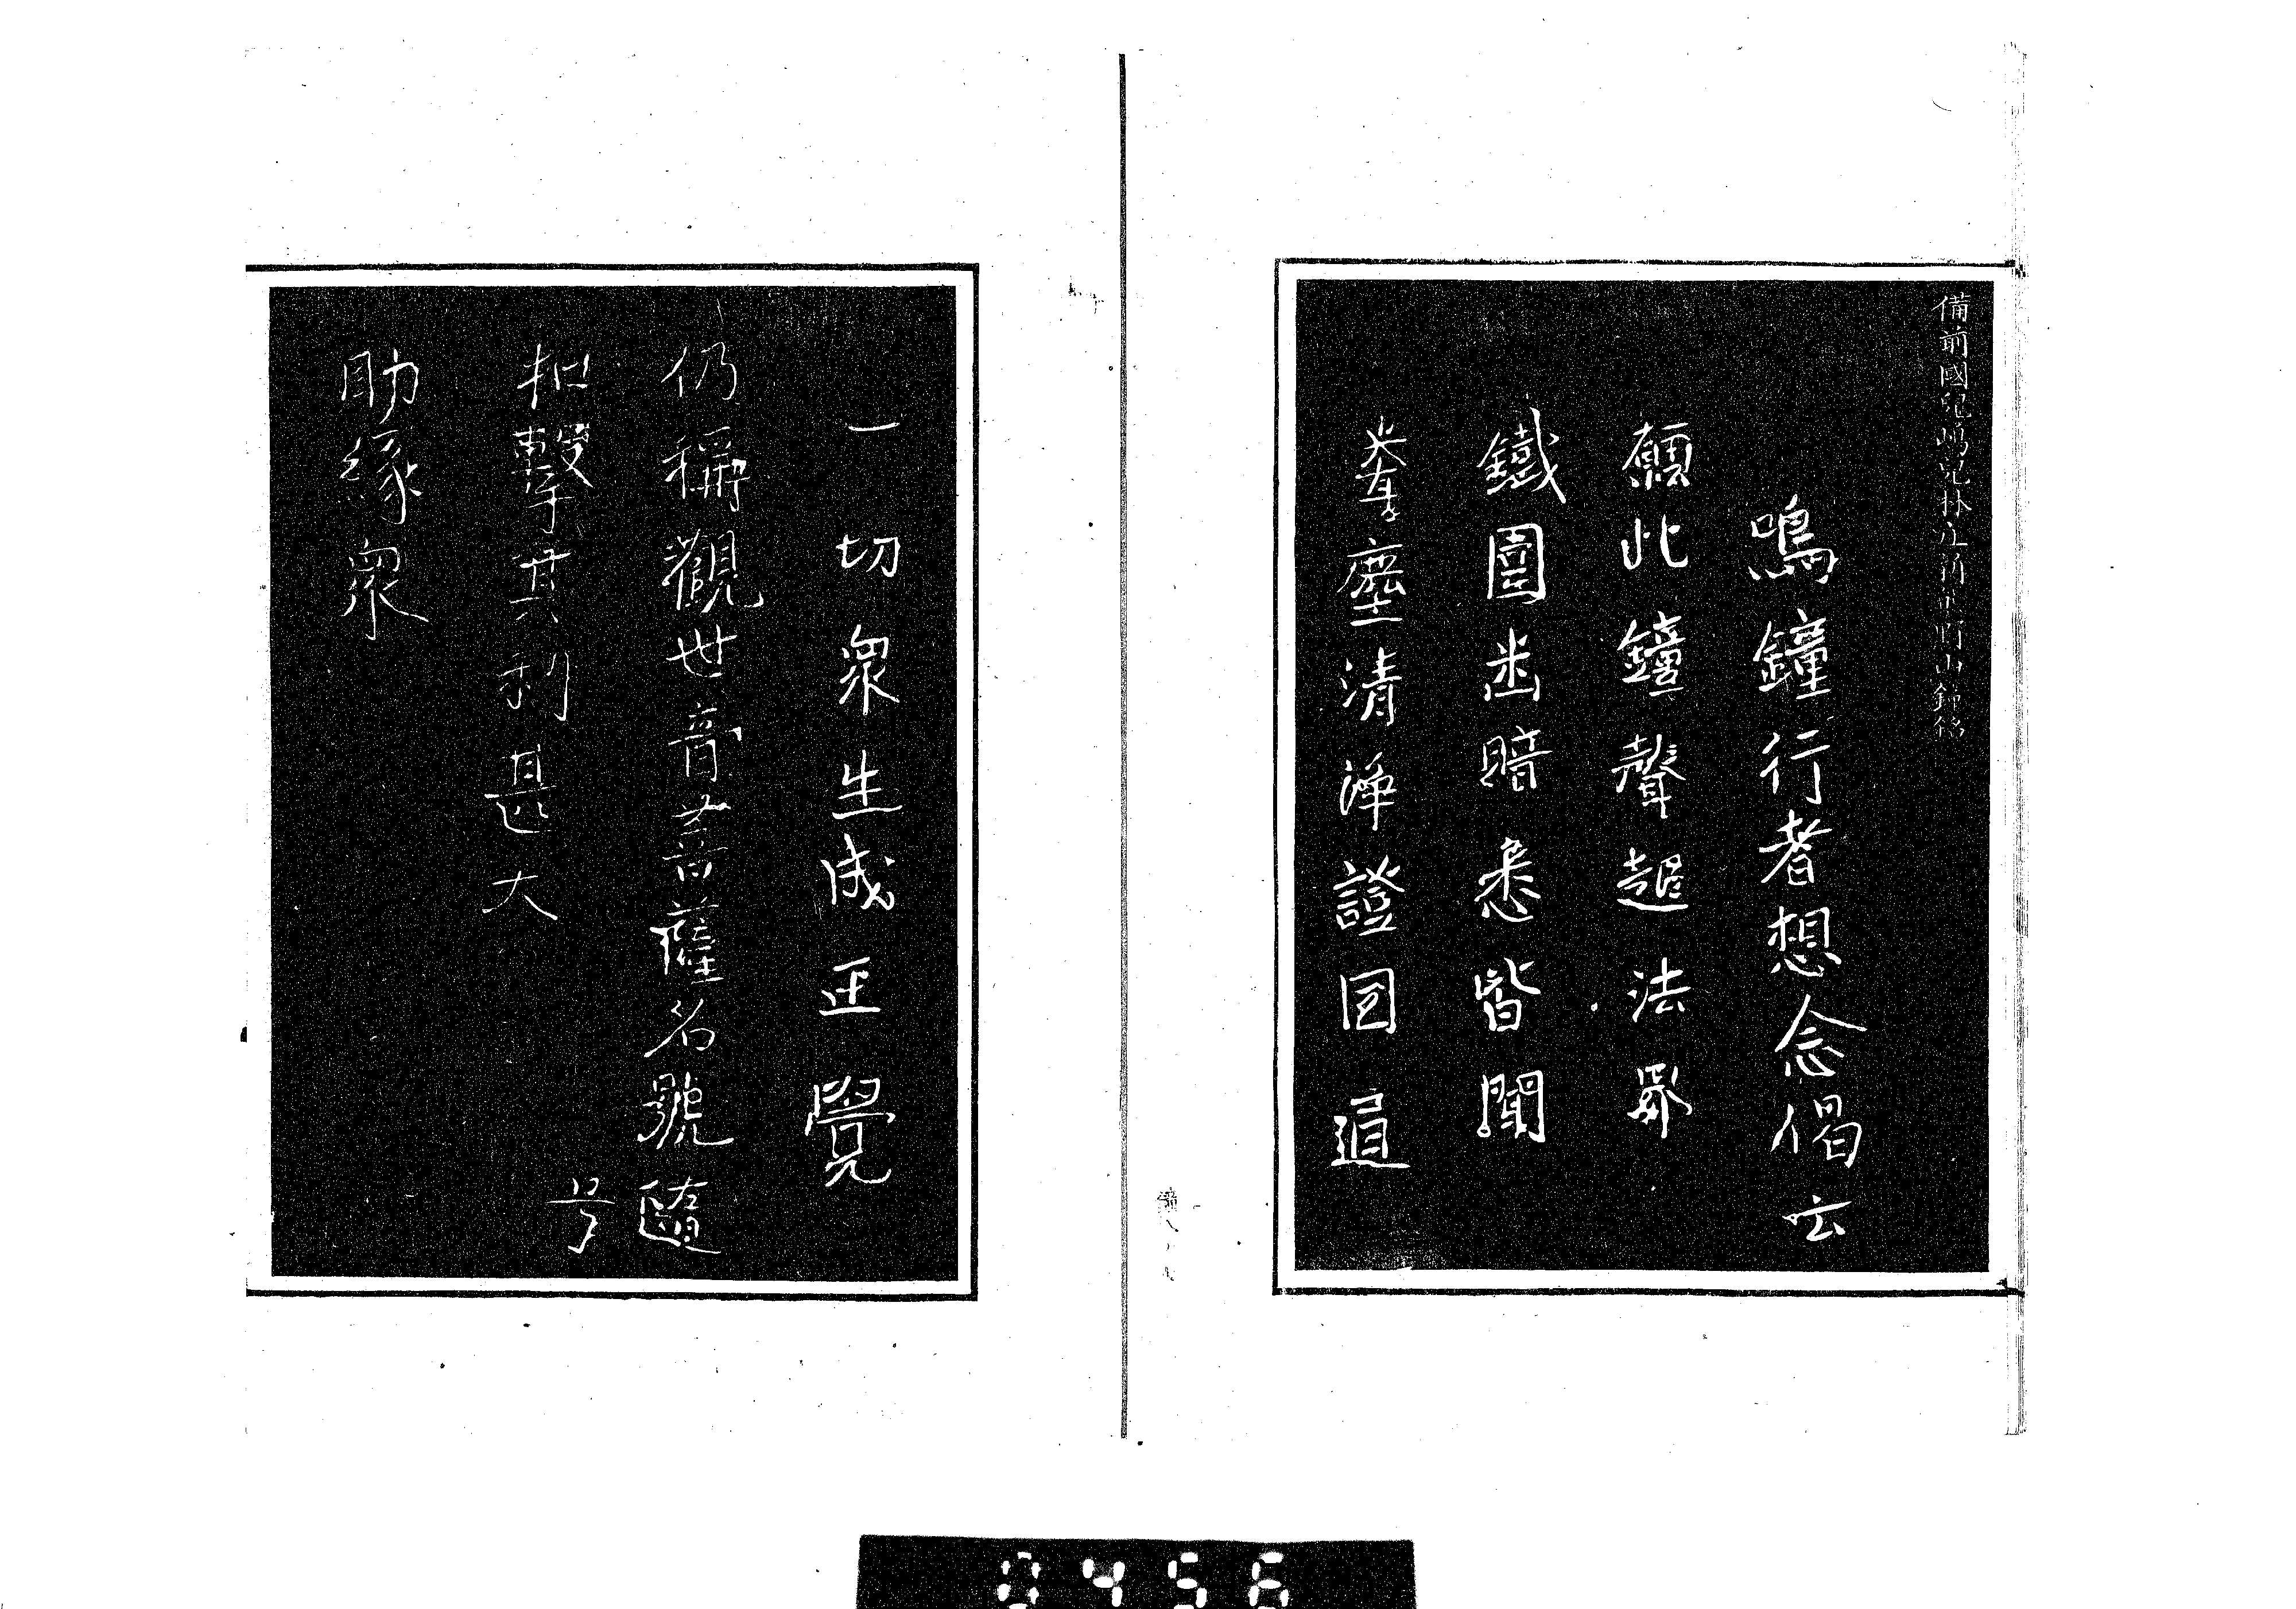 備前國兒嶋兒林庄新熊野山鐘銘
鳴鐘行者想念偈云
願此鐘聲超法界
鐵圍幽暗悉皆聞
塵清淨證圓通
一切衆生成正覺
仍稱觀世音菩薩名號隨
号
扣擊其利甚大
助緣衆
0456